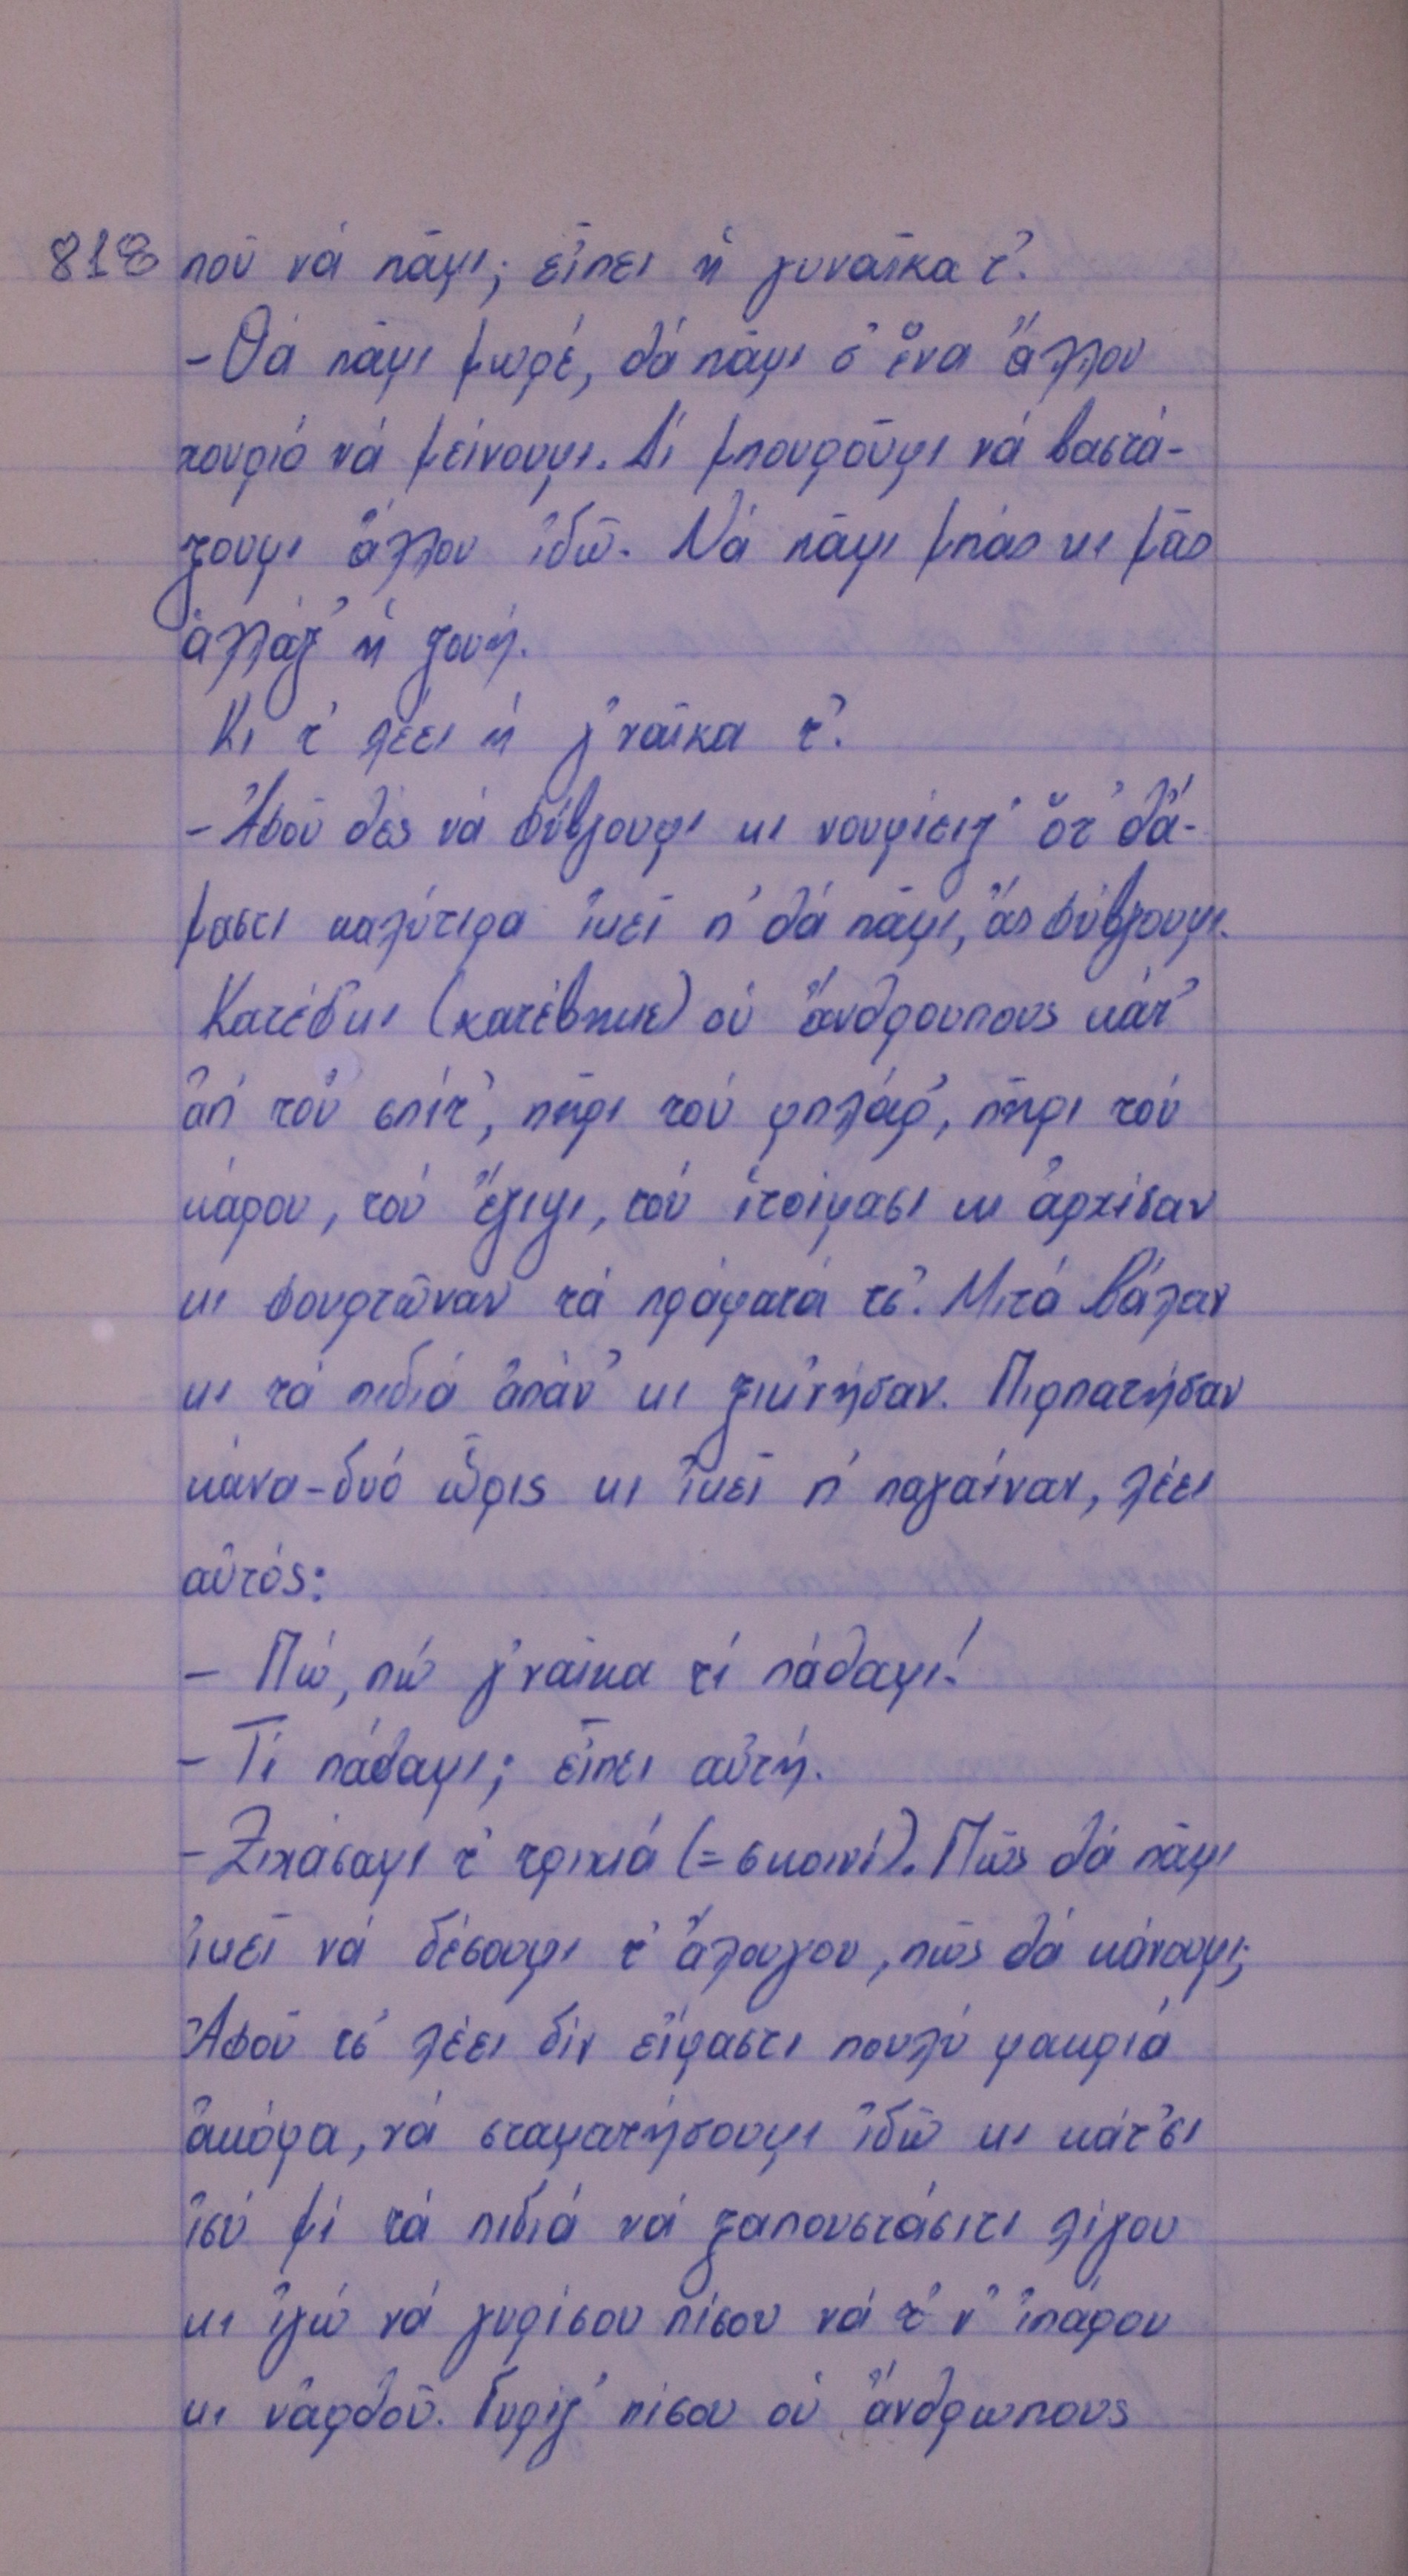 818 ποῦ νά πᾶμι; εἶπει ἡ γυναῖκα τ'.
- Θά πᾶμι μωρέ, θά πᾶμι σ' ἕνα ἄλλου
χουριό νά μείνουμι. Δί μπουροῦμι νά βαστά-
ξουμι ἄλλου ἰδῶ. Νά πᾶμι μπάς κι μᾶς
ἀλλάξ' ἡ ζουή.
Κι τ' λέει ἡ γ'ναῖκα τ'.
- Ἀφοῦ θές νά φύβγουμι κι νουμίειζ' ὅτ' θἄ-
μαστι καλύτιρα ἰκεῖ π' θά πᾶμι, ἄς φύβγουμι.
Κατέβκι (κατέβηκε) οὑ ἄνθρουπους κάτ'
ἀπ' τοὐ σπίτ', πῆρι τοὐ μπλάρ', πῆρι τού
κάρου, τού ἔζιψι, τού ἱτοίμασι κι ἀρχίσαν
κι φουρτῶναν τά πράματά τσ'. Μιτά βάλαν
κι τά πιδιά ἀπάν' κι ξικ'νήσαν. Πιρπατήσαν
κάνα-δυό ὧρις κι ἰκεῖ π' παγαίναν, λέει
αὐτός:
- Πώ, πώ γ'ναῖκα τί πάθαμι!
- Τί πάθαμι; εἶπει αὐτή.
- Ξιχάσαμι τ' τριχιά (= σκοινί). Πῶς θά πᾶμι
ἰκεῖ νά δέσουμι τ' ἄλουγου, πῶς θά κάνουμι;
Ἀφοῦ τσ' λέει δίν εἴμαστι πουλύ μακριά
ἀκόμα, νά σταματήσουμι ἰδῶ κι κάτ'σι
ἰσύ μί τά πιδιά νά ξαπουστάσιτι λίγου
κι ἰγώ νά γυρίσου πίσου νά τ' ν' ἰπάρου
κι νἀρθοῦ. Γυρίζ' πίσου οὑ ἄνθρωπους